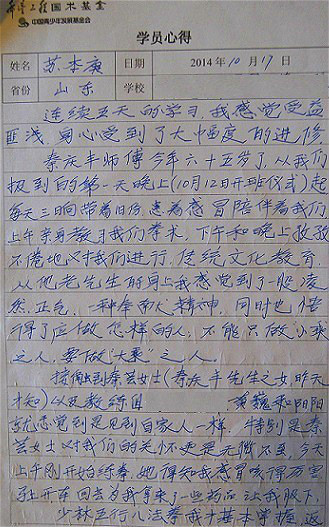 希望工程国术基金
中国青少年发展基金会
学员心得
姓名 苏本庚 日期 2014年10月17日
省份 山东 学校
连续五天的学习,我感觉受益
匪浅,身心受到了大幅度的进修。
秦庆丰师傅今年六十五岁了,从我们
报到的第一天晚上(10月12日开班仪式)起
每天三日晌带着旧伤,患着感冒陪伴着我们
上午亲身教习我们拳术,下午和晚上孜孜
不倦地对我们进行,传统文化教育,
从他老先生的身上我感觉到了一股凌
然正气,一种奉献精神,同时也懂
得了应做怎样的人,不能只做"小乘"
之人,要做"大乘"之人。
接触到秦芸女士(秦庆丰先生之女,昨天
才知)以及教练组 黄巍和阳阳
就感觉到是见到自家人一样,特别是秦
芸女士对我们的关怀更是无微不至,今天
上午刚开始练拳,她得知我感冒咳得厉害
驻开车回去为我拿来了一些药品让我服下,
少林五行八法拳我才基本掌握,返